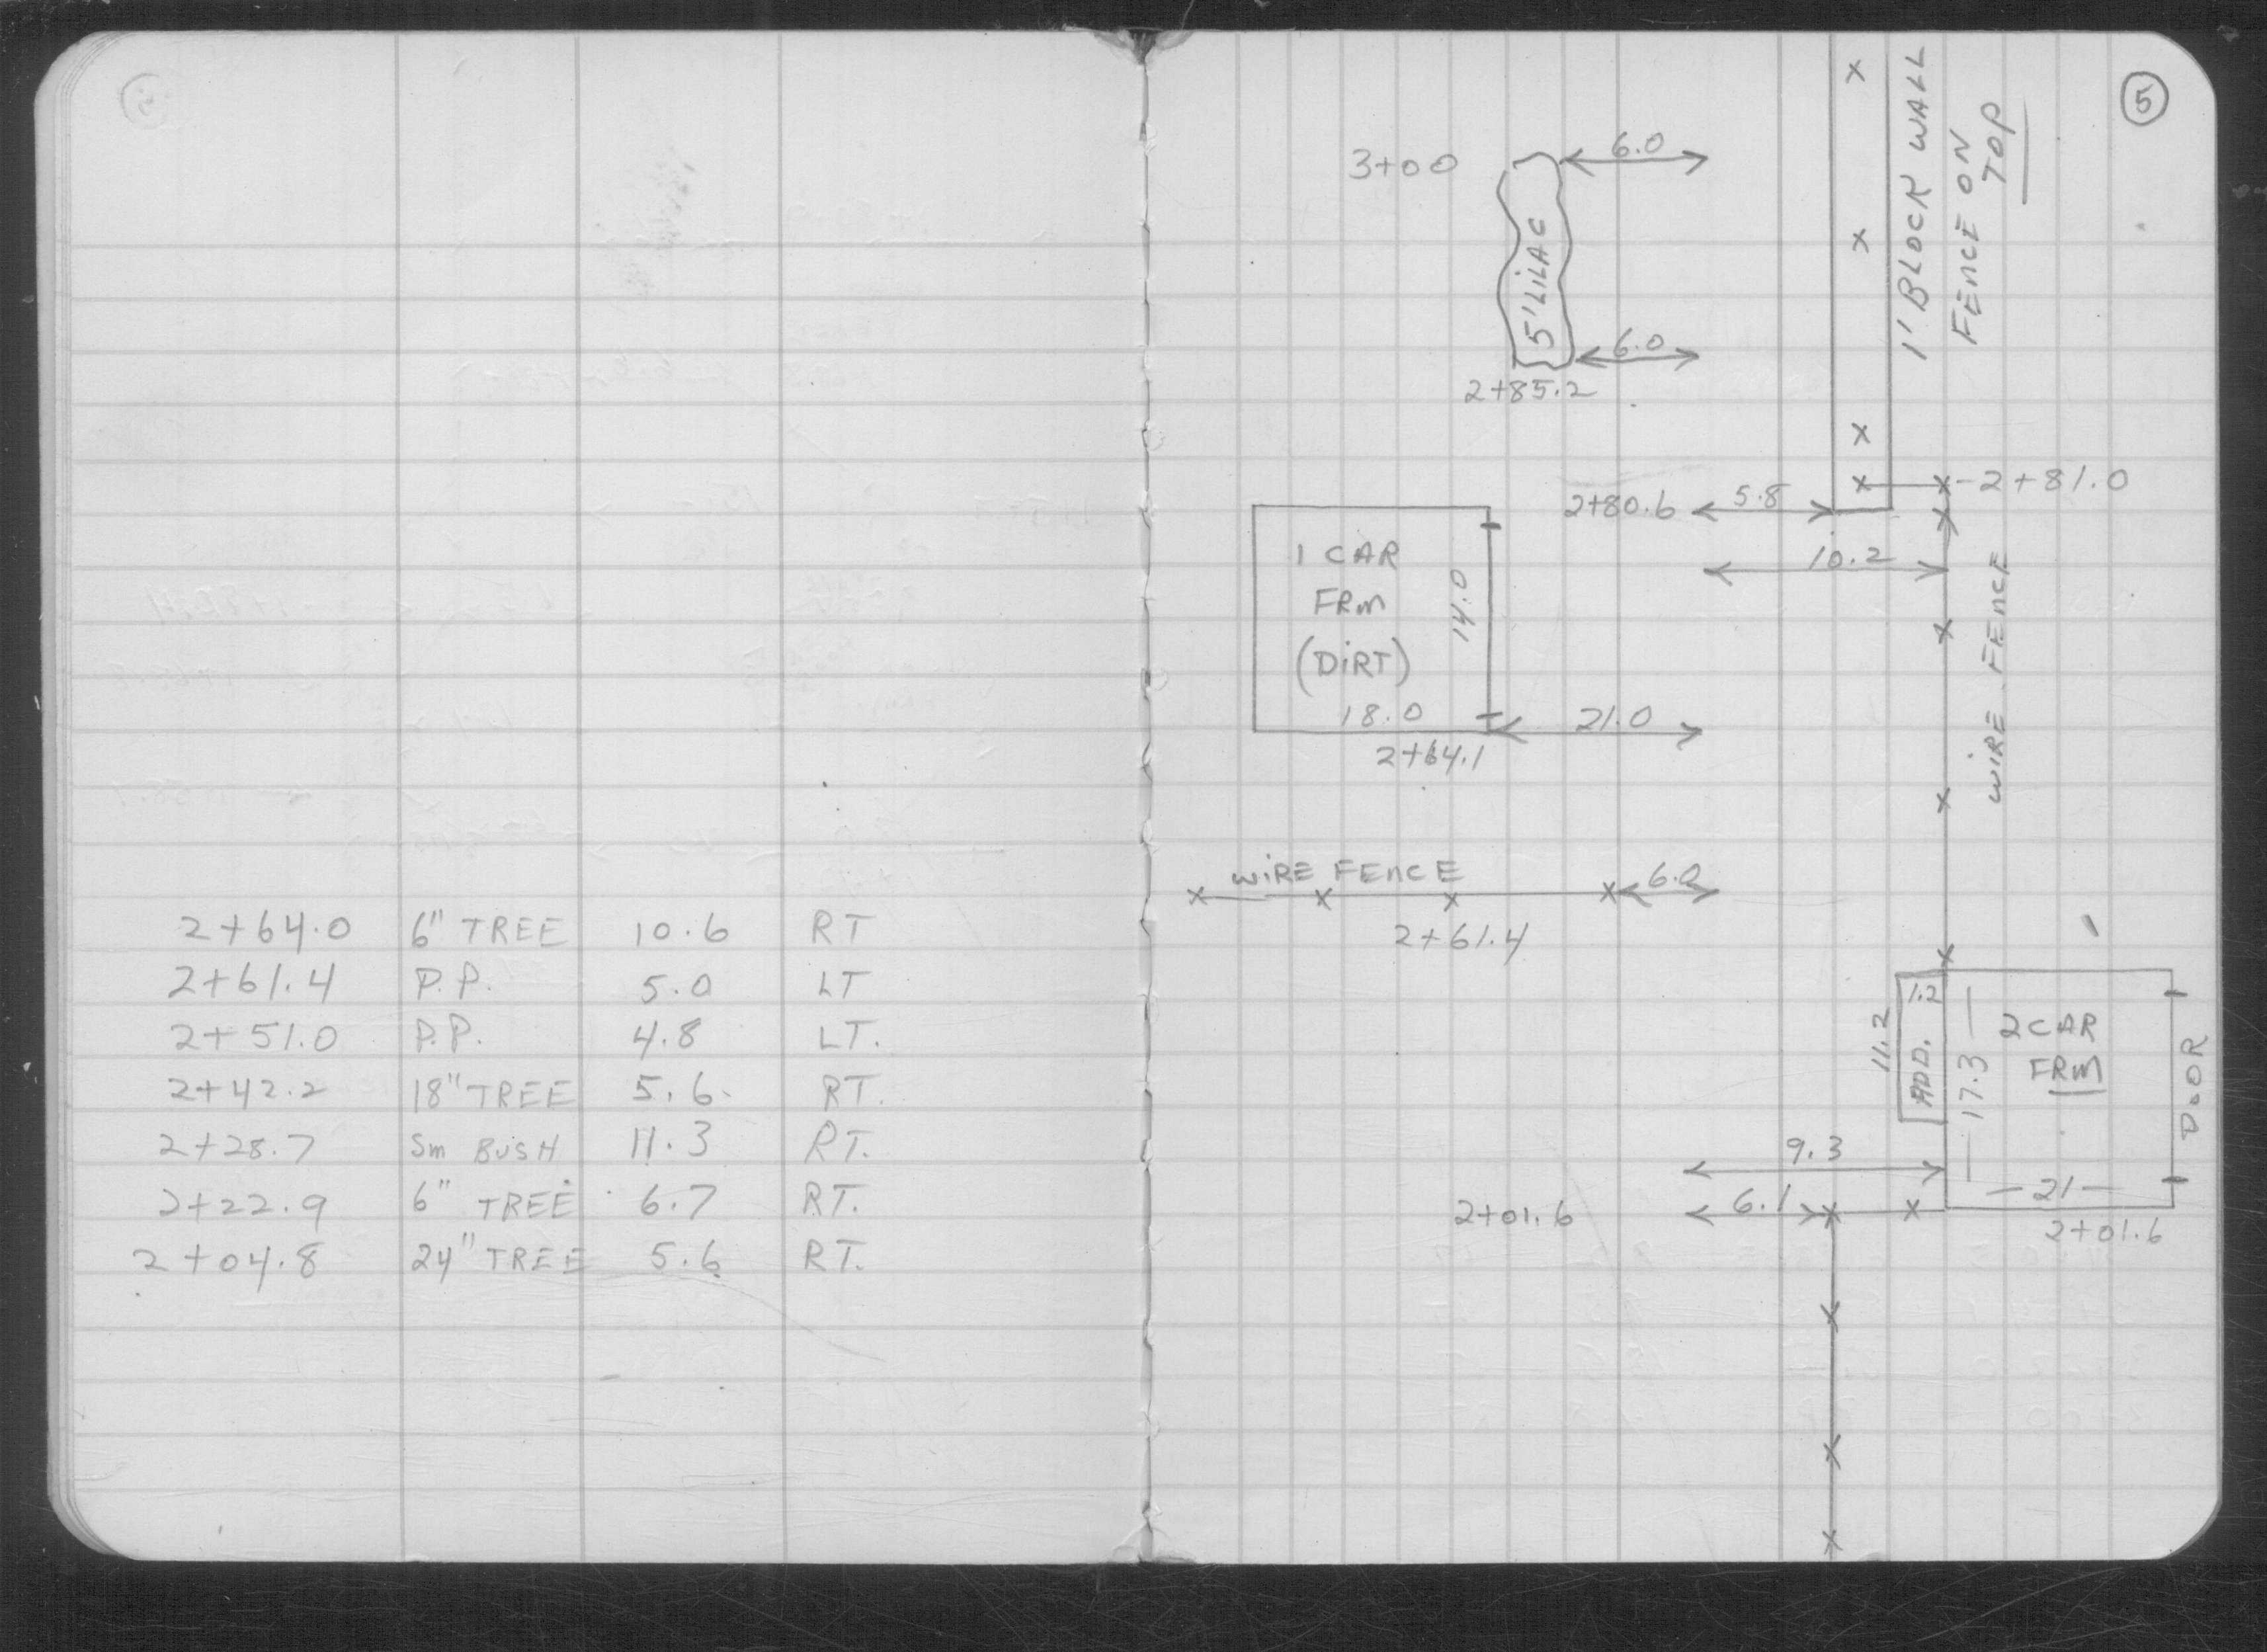 2+64.0 6" TREE 10.6 RT
2+61.4 P.P. 5.0 LT
2+51.0 P.P. 4.8 LT.
2+42.2 18" TREE 5.6 RT.
2+28.7 Sm BUSH 11.3 RT.
2+22.9 6" TREE 6.7 RT.
2+04.8 24" TREE 5.6 RT.
5
3+00
6.0
5' LILAC
6.0
2+85.2
1' BLOCK WALL
FENCE ON
TOP
2+81.0
2+80.6
5.8
10.2
1 CAR
FRM
(DIRT)
14.0
18.0
21.0
2+64.1
WIRE FENCE
WIRE FENCE
6.0
2+61.4
1.2
11.2
ADD.
17.3
2 CAR
FRM
DOOR
9.3
21
2+01.6
6.1
2+01.6